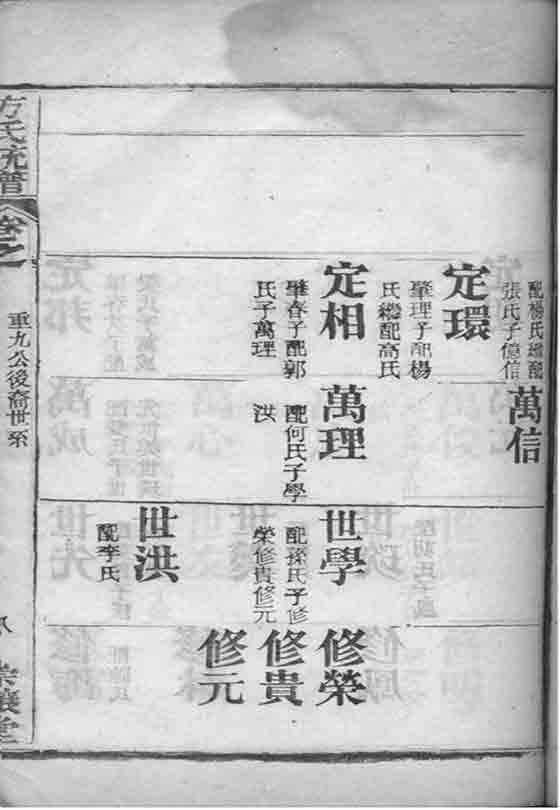 配楊氏繼配
張氏子億信
定環
肇理子配楊
氏繼配高氏
定相
肇春子配郭
氏子萬理
萬信
萬理
配何氏子學
洪
世學
配孫氏子修
榮修貴修元
世洪
配李氏
修榮
修貴
修元
方氏統譜
卷之
重九公後裔世系
八